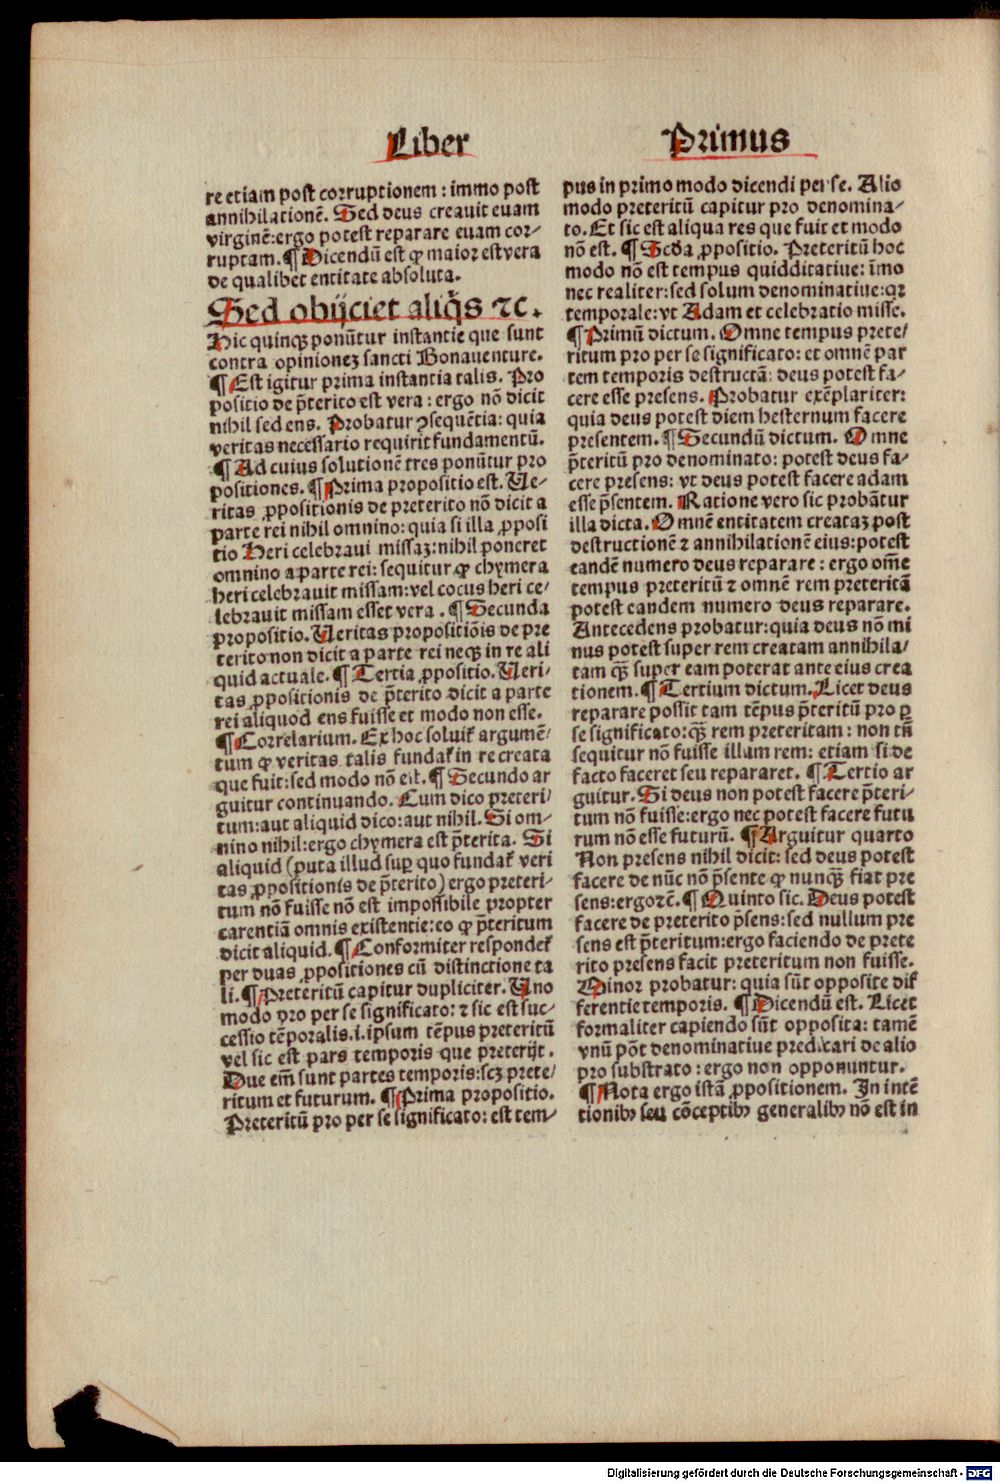 Liber
Primus
re etiam post corruptionem : immo post
annihilationē. Sed deus creauit euam
virginē:ergo potest reparare euam cor-
ruptam.¶ Dicendū est ꝙ maior est vera
de qualibet entitate absoluta.
Sed obijciet aliq̄s ⁊c.
Hic quinqꝫ ponūtur instantie que sunt
contra opinioneꝫ sancti Bonauenture.
¶ Est igitur prima instantia talis. Pro
positio de p̄terito est vera : ergo nō dicit
nihil sed ens. Probatur ꝯsequētia: quia
veritas necessario requirit fundamentū.
¶ Ad cuius solutionē tres ponūtur pro
positiones. ¶ Prima propositio est. Ue-
ritas ꝓpositionis de preterito nō dicit a
parte rei nihil omnino: quia si illa ꝓposi
tio Heri celebraui missaꝫ:nihil poneret
omnino a parte rei: sequitur ꝙ chymera
heri celebrauit missam:vel cocus heri ce-
lebrauit missam esset vera . ¶ Secunda
propositio. Ueritas propositiōis de pre
terito non dicit a parte rei neqꝫ in re ali
quid actuale. ¶ Tertia ꝓpositio. Ueri-
tas ꝓpositionis de p̄terito dicit a parte
rei aliquod ens fuisse et modo non esse.
¶ Correlarium. Ex hoc soluit̄ argumē-
tum ꝙ veritas talis fundat̄ in re creata
que fuit:sed modo nō est. ¶ Secundo ar
guitur continuando. Cum dico preteri-
tum:aut aliquid dico:aut nihil. Si om-
nino nihil:ergo chymera est p̄terita. Si
aliquid (puta illud suꝑ quo fundat̄ veri
tas ꝓpositionis de p̄terito) ergo preteri-
tum nō fuisse nō est impossibile propter
carentiā omnis existentie:eo ꝙ p̄teritum
dicit aliquid. ¶ Conformiter respondet̄
per duas ꝓpositiones cū distinctione ta
li. ¶ Preteritū capitur dupliciter. Uno
modo pro per se significato: ⁊ sic est suc-
cessio tēporalis.i.ipsum tēpus preteritū
vel sic est pars temporis que preterijt .
Due em̄ sunt partes temporis:scꝫ prete-
ritum et futurum. ¶ Prima propositio.
Preteritū pro per se significato: est tem-
pus in primo modo dicendi per se. Alio
modo preteritū capitur pro denomina-
to. Et sic est aliqua res que fuit et modo
nō est. ¶ Scd̄a ꝓpositio. Preteritū hoc
modo nō est tempus quidditatiue: īmo
nec realiter:sed solum denominatiue:qꝛ
temporale:vt Adam et celebratio misse.
¶ Primū dictum. Omne tempus prete-
ritum pro per se significato: et omnē par
tem temporis destructā: deus potest fa-
cere esse presens. Probatur exēplariter:
quia deus potest diem hesternum facere
presentem. ¶ Secundū dictum. Omne
p̄teritū pro denominato: potest deus fa-
cere presens: vt deus potest facere adam
esse p̄sentem. Ratione vero sic probātur
illa dicta. Omnē entitatem creataꝫ post
destructionē ⁊ annihilationē eius:potest
eandē numero deus reparare : ergo om̄e
tempus preteritū ⁊ omnē rem preteritā
potest eandem numero deus reparare.
Antecedens probatur:quia deus nō mi
nus potest super rem creatam annihila-
tam qꝫ̄ super eam poterat ante eius crea
tionem. ¶ Tertium dictum. Licet deus
reparare possit tam tēpus p̄teritū pro ꝑ
se significato:qꝫ̄ rem preteritam : non tn̄
sequitur nō fuisse illam rem: etiam si de
facto faceret seu repararet. ¶ Tertio ar
guitur. Si deus non potest facere p̄teri-
tum nō fuisse:ergo nec potest facere futu
rum nō esse futurū. ¶ Arguitur quarto
Non presens nihil dicit: sed deus potest
facere de nūc nō p̄sente ꝙ nunqꝫ̄ fiat pre
sens:ergo⁊c. ¶ Quinto sic. Deus potest
facere de preterito p̄sens:sed nullum pre
sens est p̄teritum:ergo faciendo de prete
rito presens facit preteritum non fuisse.
Minor probatur: quia sūt opposite dif
ferentie temporis. ¶ Dicendū est. Licet
formaliter capiendo sūt opposita: tamē
vnū pōt denominatiue predicari de alio
pro substrato : ergo non opponuntur.
¶ Nota ergo istā ꝓpositionem. In intē
tionibꝫ seu cōceptibꝫ generalibꝫ nō est in
Digitalisierung gefördert durch die Deutsche Forschungsgemeinschaft - DFG